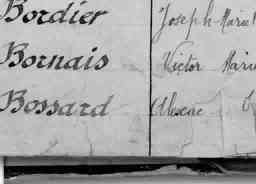 Bordier Joseph-Marie
Bornais Victor Marie
Bossard